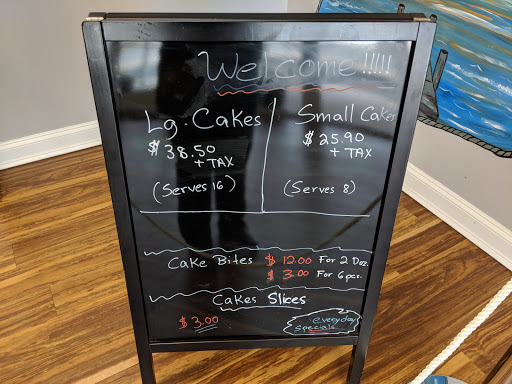 Welcome!!!!!
Lg. Cakes
$38.50
+ TAX
(Serves 16)
Small Cakes
$25.90
+ TAX
(Serves 8)
Cake Bites $12.00 For 2 Doz.
$3.00 For 6pcs.
Cakes Slices
$3.00
everyday
specials